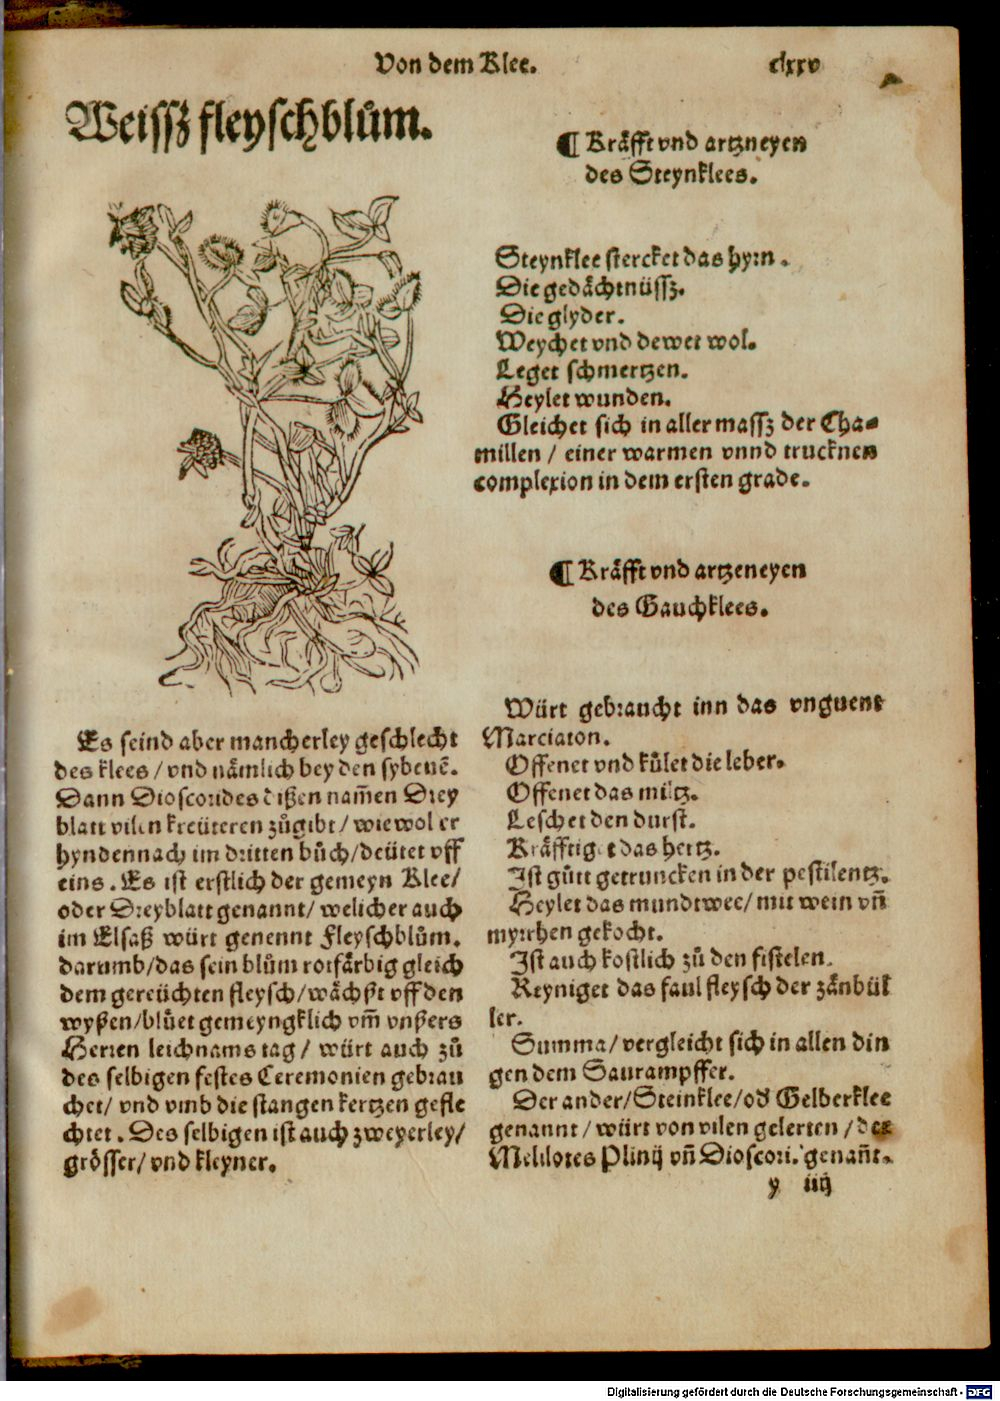 Von dem Klee.
clxxv
Weissz fleyschblům.
Es seind aber mancherley geschlecht
des klees / vnd nämlich bey den sybenē.
Dann Dioscorides dißen nam̄en Drey
blatt vilen kreüteren zůgibt / wiewol er
hyndennach im dritten bůch / deütet vff
eins. Es ist erstlich der gemeyn Klee /
oder Dreyblatt genannt / welicher auch
im Elsaß würt genennt Fleyschblům.
darumb / das sein blům rotfärbig gleich
dem gereüchten fleysch / wächßt vff den
wyßen / blůet gemeyngklich vm̄ vnßers
Herren leichnams tag / würt auch zů
des selbigen festes Ceremonien gebrau
chet / vnd vmb die stangen kertzen gefle
chtet. Des selbigen ist auch zweyerley /
grösser / vnd kleyner.
¶ Kräfft vnd artzneyen
des Steynklees.
Steynklee stercket das hyrn.
Die gedächtnüssz.
Die glyder.
Weychet vnd dewet wol.
Leget schmertzen.
Heylet wunden.
Gleichet sich in aller massz der Cha=
millen / einer warmen vnnd trucknen
complexion in dem ersten grade.
¶ Kräfft vnd artzeneyen
des Gauchklees.
Würt gebraucht inn das vnguent
Marciaton.
Offenet vnd kůlet die leber.
Offenet das miltz.
Leschet den durst.
Kräfftiget das hertz.
Ist gůtt getruncken in der pestilentz.
Heylet das mundtwee / mit wein vn̄
myrrhen gekocht.
Ist auch kostlich zů den fistelen.
Reyniget das faul fleysch der zänbül
ler.
Summa / vergleicht sich in allen din
gen dem Saurampffer.
Der ander / Steinklee / od' Gelberklee
genannt / würt von vilen gelerten / der
Melilotes Plinij vn̄ Dioscori. genan̄t.
y iiij
Digitalisierung gefördert durch die Deutsche Forschungsgemeinschaft - DFG